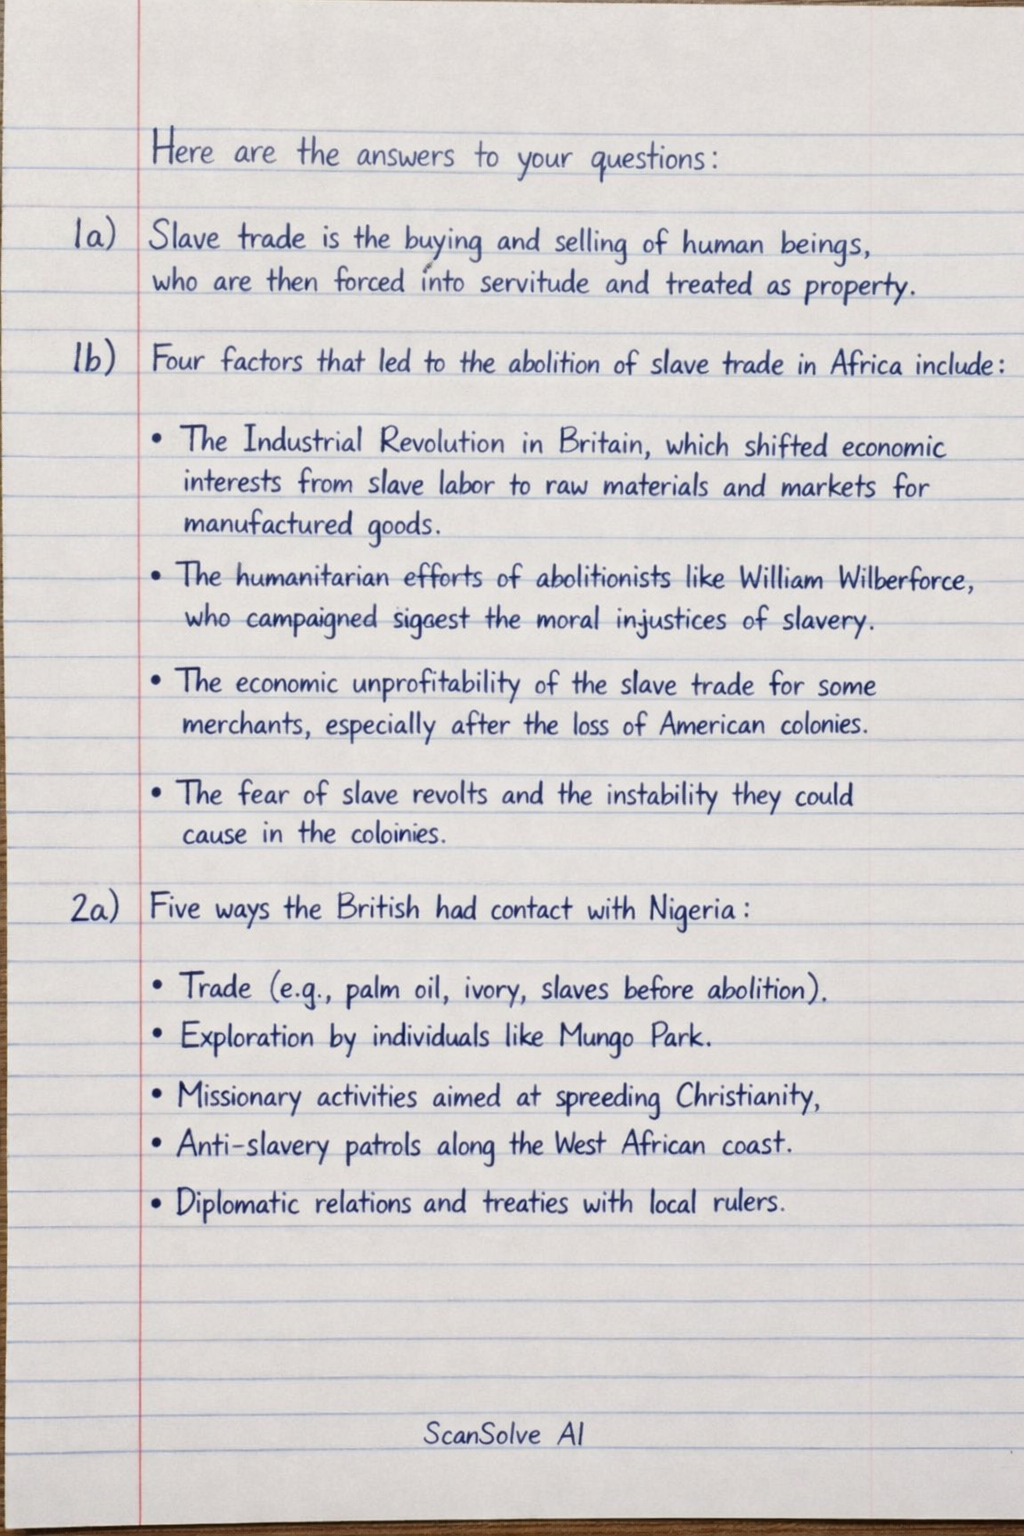 Here are the answers to your questions:
1a) Slave trade is the buying and selling of human beings,
who are then forced into servitude and treated as property.
1b) Four factors that led to the abolition of slave trade in Africa include:
• The Industrial Revolution in Britain, which shifted economic
interests from slave labor to raw materials and markets for
manufactured goods.
• The humanitarian efforts of abolitionists like William Wilberforce,
who campaigned sigaest the moral injustices of slavery.
• The economic unprofitability of the slave trade for some
merchants, especially after the loss of American colonies.
• The fear of slave revolts and the instability they could
cause in the coloinies.
2a) Five ways the British had contact with Nigeria:
• Trade (e.g., palm oil, ivory, slaves before abolition).
• Exploration by individuals like Mungo Park.
• Missionary activities aimed at spreeding Christianity,
• Anti-slavery patrols along the West African coast.
• Diplomatic relations and treaties with local rulers.
ScanSolve AI